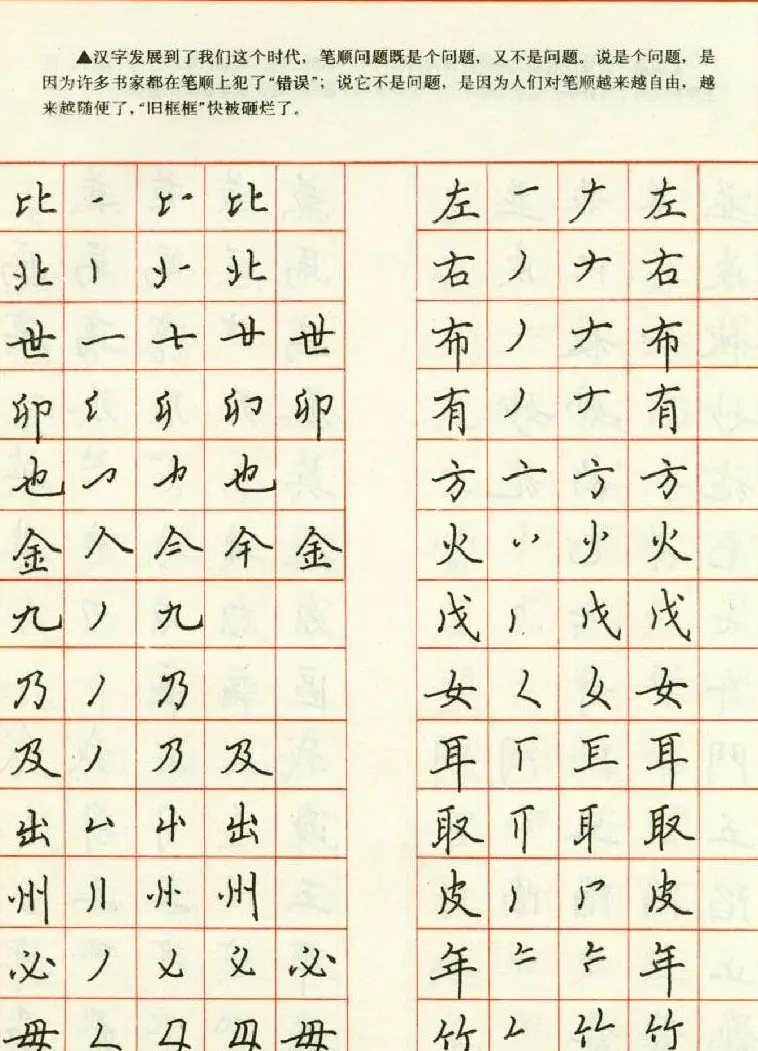 ▲汉字发展到了我们这个时代，笔顺问题既是个问题，又不是问题。说是个问题，是
因为许多书家都在笔顺上犯了“错误”；说它不是问题，是因为人们对笔顺越来越自由，越
来越随便了，“旧框框”快被砸烂了。
比 一 比
北 丨 北
世 一 十 廿 世
卯 卯
也 也
金 人 亼 仐 金
九 丿 九
乃 丿 乃
及 丿 乃 及
出 出
州 州
必 丿 必
左 一 ナ 左
右 丿 ナ 右
布 丿 ナ 布
有 丿 ナ 有
方 亠 方 方
火 火
戊 丿 戊
女 女
耳 耳
取 耳 取
皮 丿 皮
年 年
竹 竹